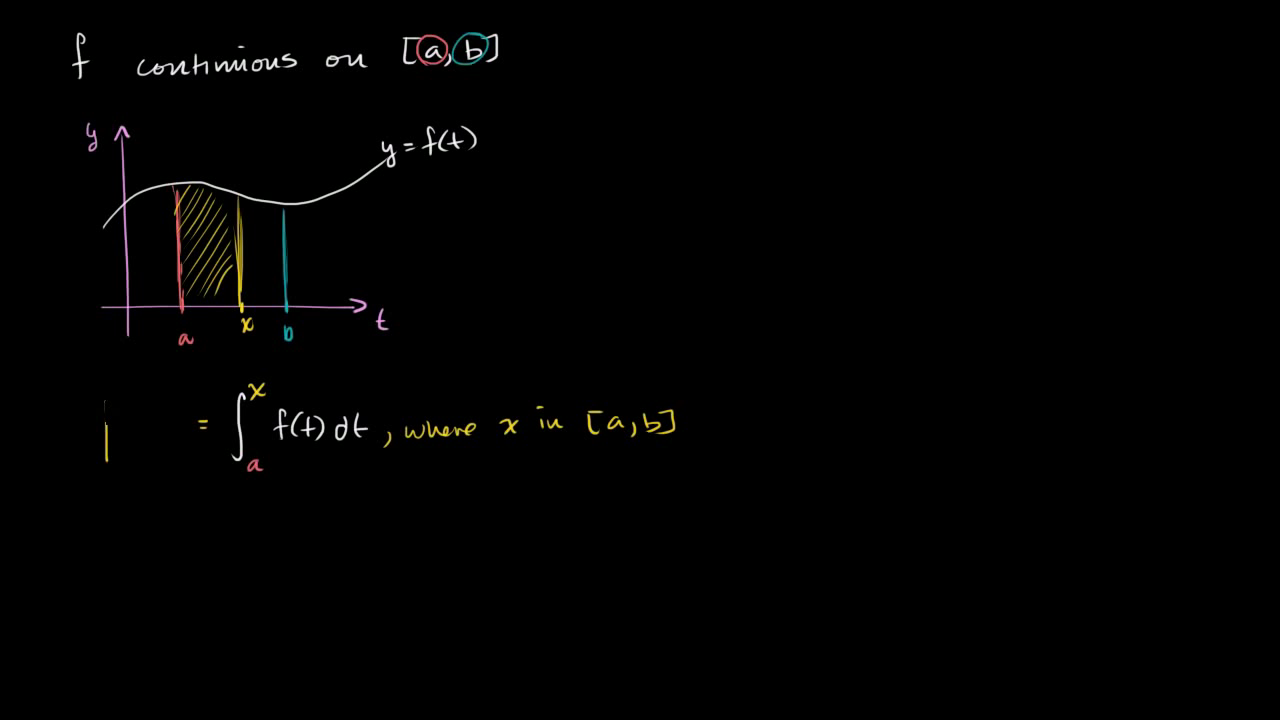 f continuous on [a, b]
y
y = f(t)
a x b t
= ∫ₐˣ f(t) dt, where x in [a, b]